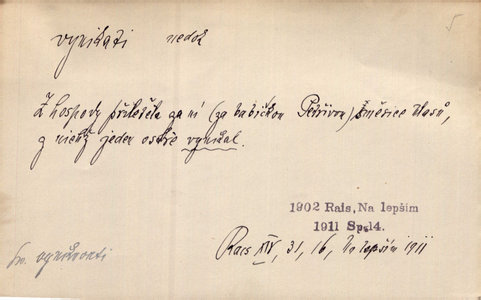 vynikati nedok
Z hospody přiletěla za ní (za babičkou Petřivou) směsice hlasů,
z nichž jeden ostře vynikal.
1902 Rais, Na lepším
1911 Sp. 14.
Rais XIV, 31, 16, Na lepším 1911